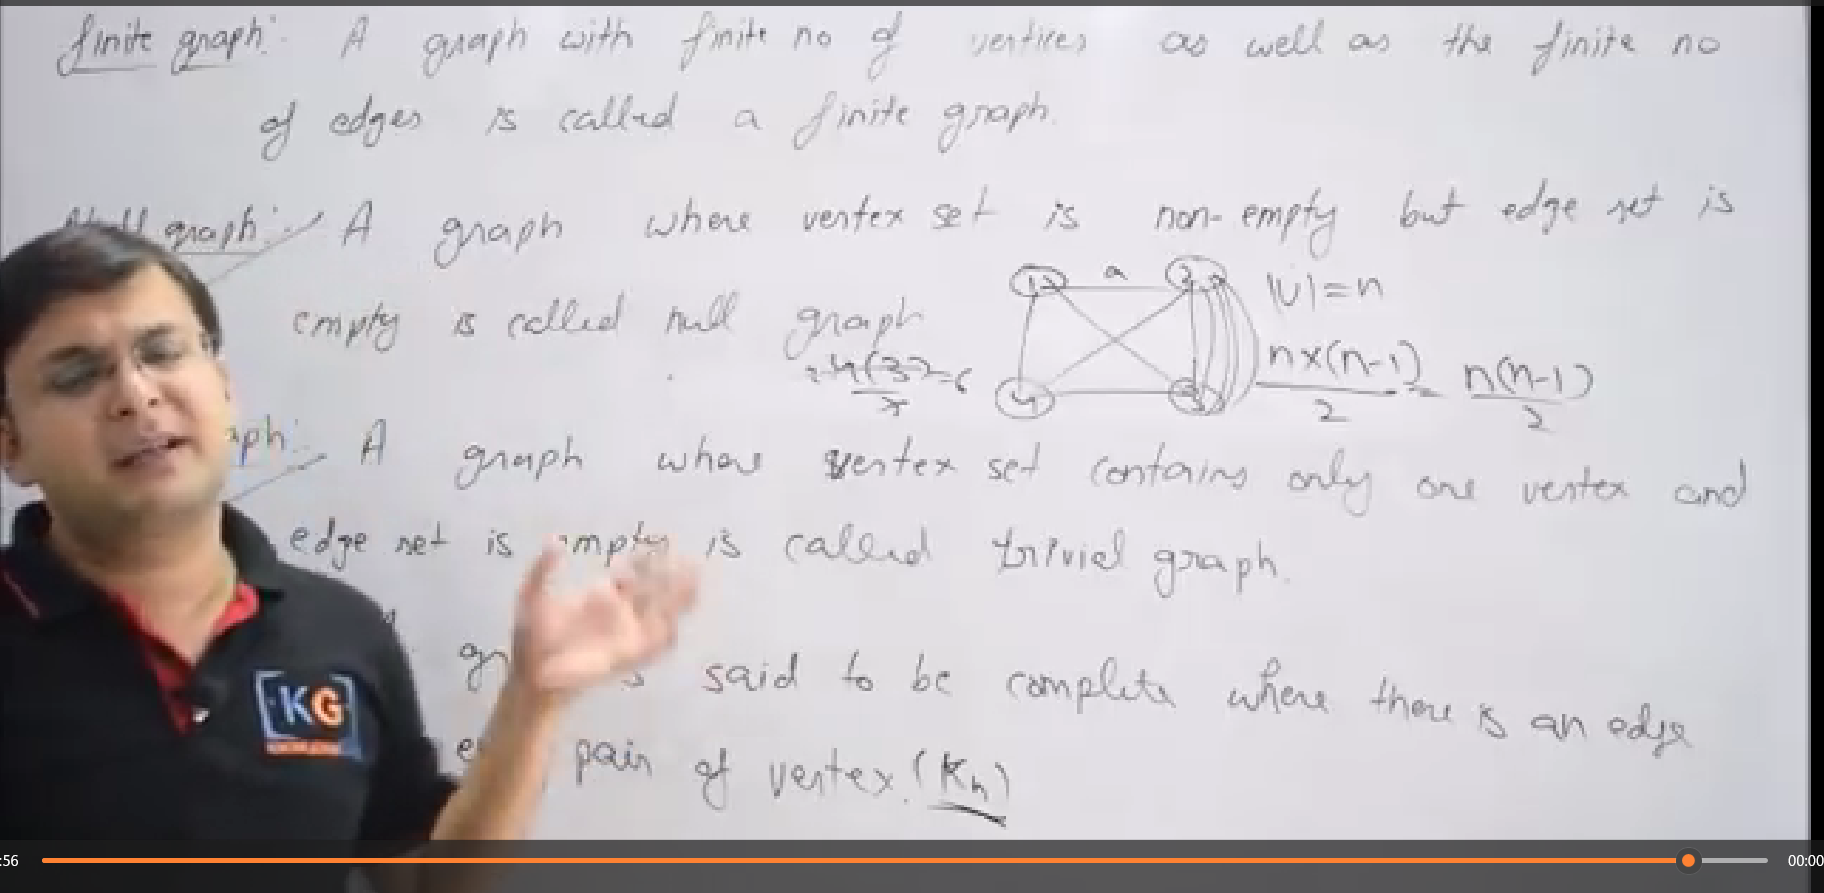 finite graph: A graph with finite no of vertices as well as the finite no
of edges is called a finite graph.
graph: A graph where vertex set is non-empty but edge set is
empty is called null graph
a
|V|=n
n×(n-1)/2 = n(n-1)/2
1 2
4 3
A graph whose vertex set contains only one vertex and
edge set is empty is called trivial graph.
said to be complete where there is an edge
pair of vertex. (Kn)
KG
:56
00:00